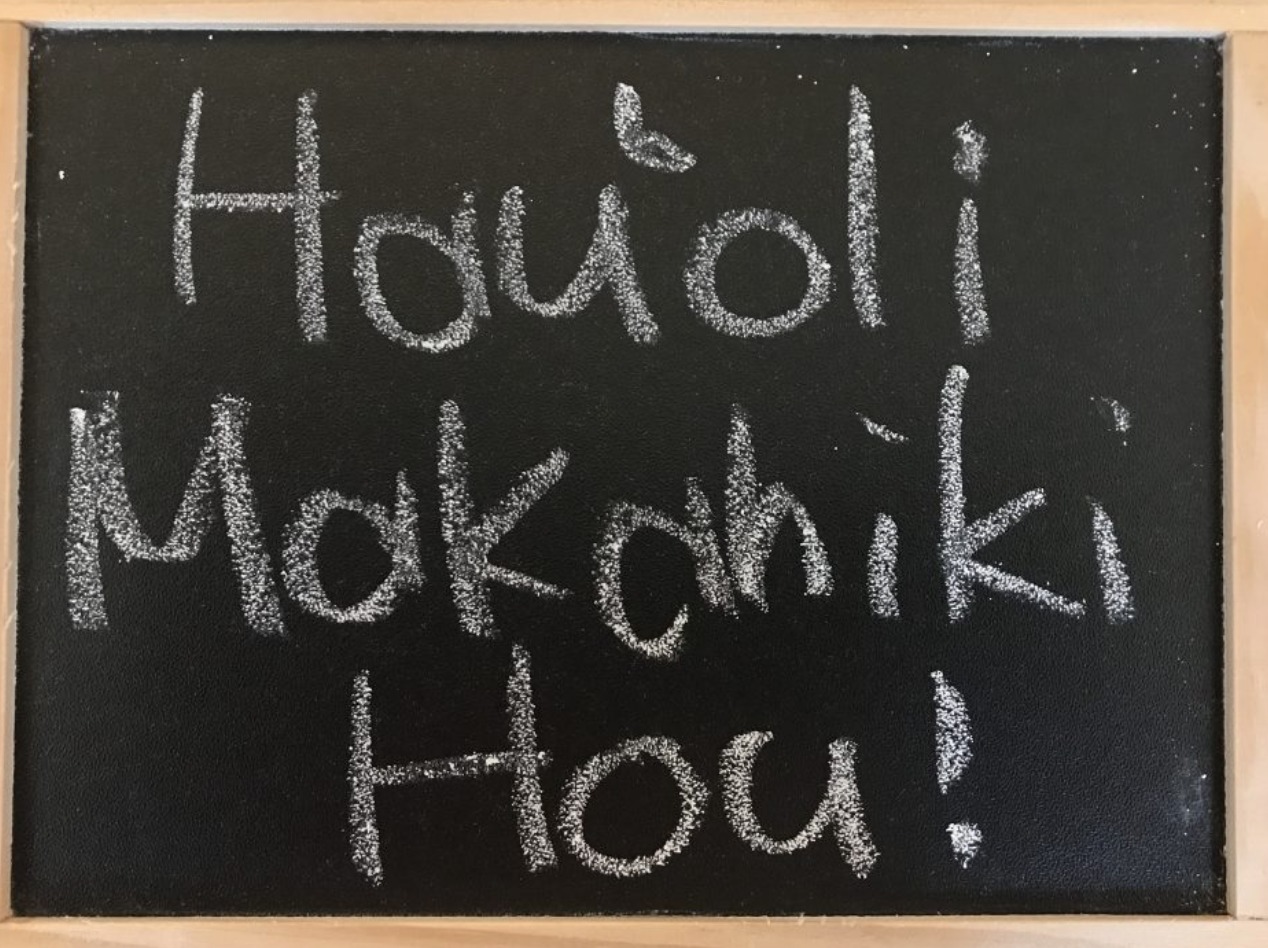 Hauʻoli
Makahiki
Hou!